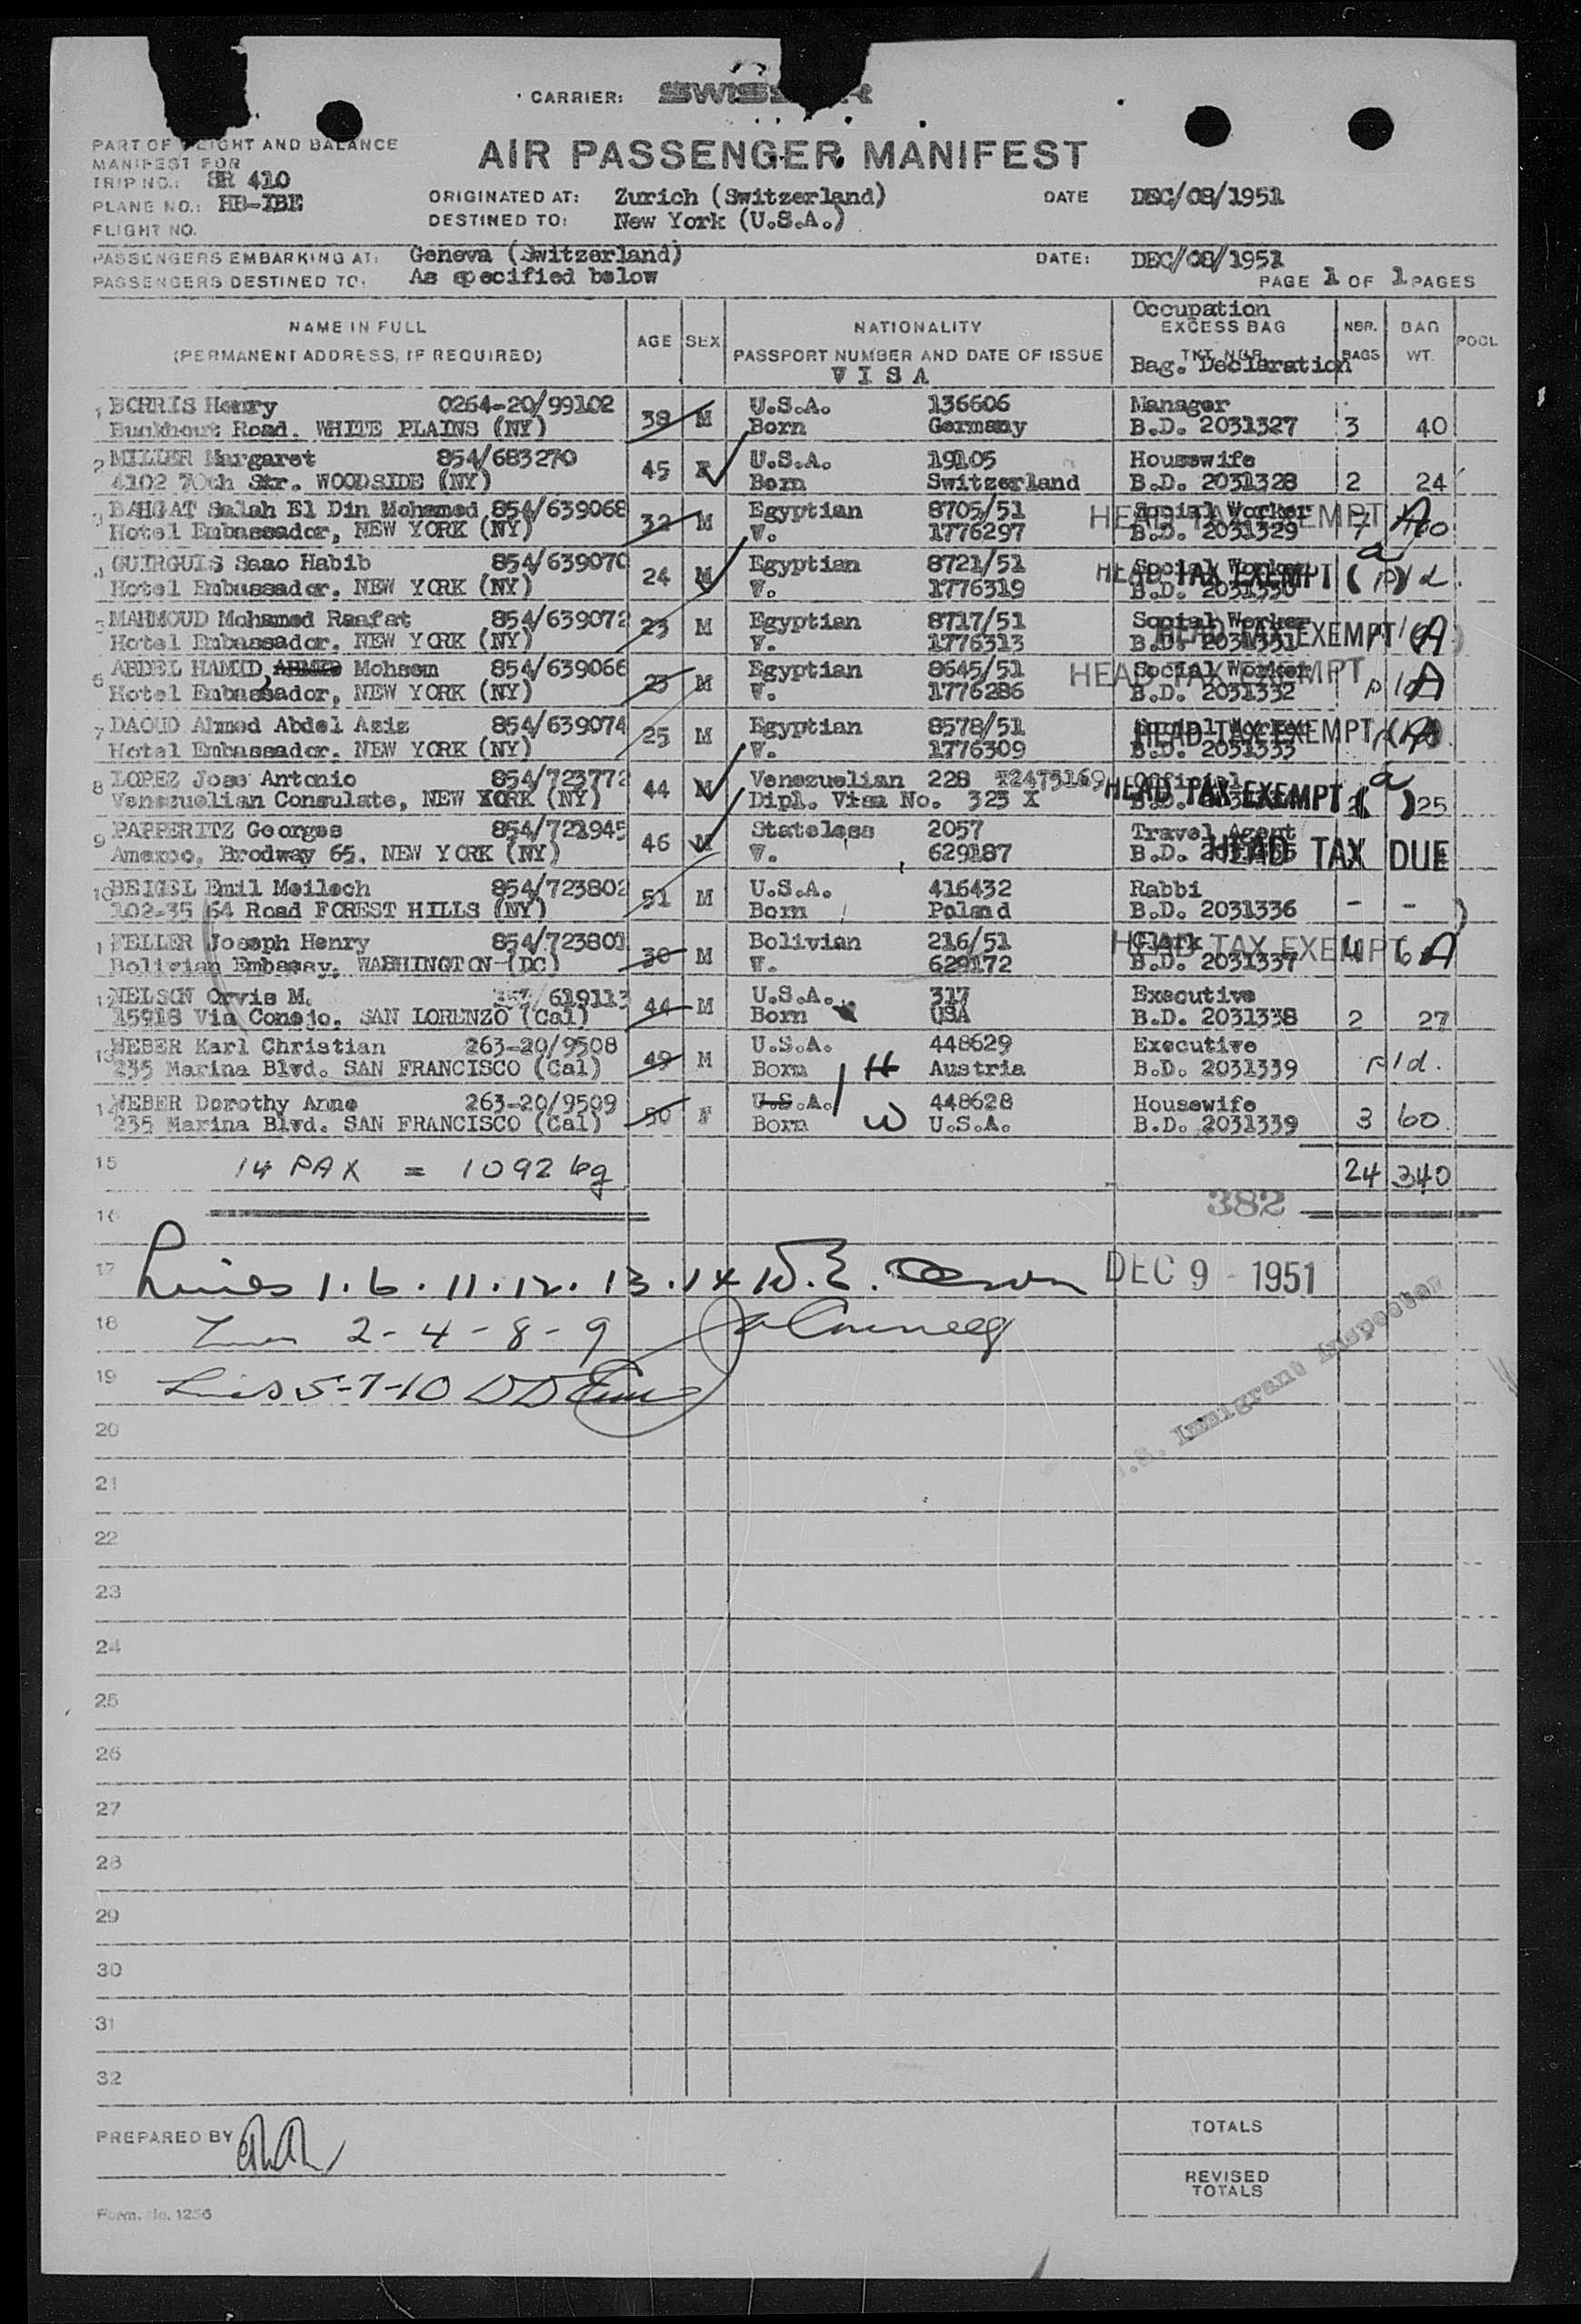 CARRIER: SWISSAIR
PART OF WEIGHT AND BALANCE
MANIFEST FOR
AIR PASSENGER MANIFEST
TRIP NO.: SR 410
PLANE NO.: HB-IBE
FLIGHT NO.
ORIGINATED AT: Zurich (Switzerland) DATE DEC/08/1951
DESTINED TO: New York (U.S.A.)
PASSENGERS EMBARKING AT: Geneva (Switzerland) DATE: DEC/08/1951
PASSENGERS DESTINED TO: As specified below PAGE 1 OF 1 PAGES
NAME IN FULL AGE SEX NATIONALITY Occupation EXCESS BAG NBR. BAG POOL
(PERMANENT ADDRESS, IF REQUIRED) PASSPORT NUMBER AND DATE OF ISSUE TKT NBR BAGS WT.
VISA Bag. Declaration
1 BORRIS Henry 0264-20/99102 38 M U.S.A. 136606 Manager
Road. WHITE PLAINS (NY) Born Germany B.D. 2031327 3 40
2 MILLER Margaret 854/683270 45 F U.S.A. 19105 Housewife
4102 70th Str. WOODSIDE (NY) Born Switzerland B.D. 2031328 2 24
3 BAHGAT Salah El Din Mohamed 854/639068 32 M Egyptian 8705/51 Social Worker HEAD TAX EXEMPT A
Hotel Embassador, NEW YORK (NY) V. 1776297 B.D. 2031329 7
4 GUIRGUIS Saao Habib 854/639070 24 M Egyptian 8721/51 Social Worker HEAD TAX EXEMPT (a)
Hotel Embassador. NEW YORK (NY) V. 1776319 B.D. 2031330
5 MAHMOUD Mohamed Raafat 854/639072 23 M Egyptian 8717/51 Social Worker HEAD TAX EXEMPT (A)
Hotel Embassador. NEW YORK (NY) V. 1776313 B.D. 2031331
6 ABDEL HAMID, Mohsem 854/639066 23 M Egyptian 8645/51 Social Worker HEAD TAX EXEMPT A
Hotel Embassador, NEW YORK (NY) V. 1776286 B.D. 2031332
7 DAOUD Ahmed Abdel Aziz 854/639074 25 M Egyptian 8578/51 Social Worker HEAD TAX EXEMPT (A)
Hotel Embassador. NEW YORK (NY) V. 1776309 B.D. 2031333
8 LOPEZ Jose Antonio 854/723772 44 M Venezuelian 228 T2475169 Official HEAD TAX EXEMPT (a)
Venezuelian Consulate, NEW YORK (NY) Dipl. Visa No. 323 X B.D. 2 25
9 PAPPERITZ Georges 854/721945 46 M Stateless 2057 Travel Agent
Amexco, Brodway 65. NEW YORK (NY) V. 629187 B.D. HEAD TAX DUE
10 BEIGEL Emil Meilech 854/723802 51 M U.S.A. 416432 Rabbi
102-35 64 Road FOREST HILLS (NY) Born Poland B.D. 2031336 - -
11 FELLER Joseph Henry 854/723801 30 M Bolivian 216/51 Clerk HEAD TAX EXEMPT A
Bolivian Embassy. WASHINGTON (DC) V. 629172 B.D. 2031337 4
12 NELSON Orvis M. /619113 44 M U.S.A. 317 Executive
15918 Via Conejo. SAN LORENZO (Cal) Born USA B.D. 2031338 2 27
13 WEBER Karl Christian 263-20/9508 49 M U.S.A. 448629 Executive
235 Marina Blvd. SAN FRANCISCO (Cal) Born H Austria B.D. 2031339 pld.
14 WEBER Dorothy Anne 263-20/9509 50 F U.S.A. 448628 Housewife
235 Marina Blvd. SAN FRANCISCO (Cal) Born W U.S.A. B.D. 2031339 3 60
15 14 PAX = 1092 kg 24 340
16 382
17 Lines 1.6.11.12.13.14 DEC 9 - 1951
18 2-4-8-9
19 Lines 5-7-10
U.S. Immigrant Inspector
20
21
22
23
24
25
26
27
28
29
30
31
32
PREPARED BY TOTALS
REVISED
TOTALS
Form. No. 1256